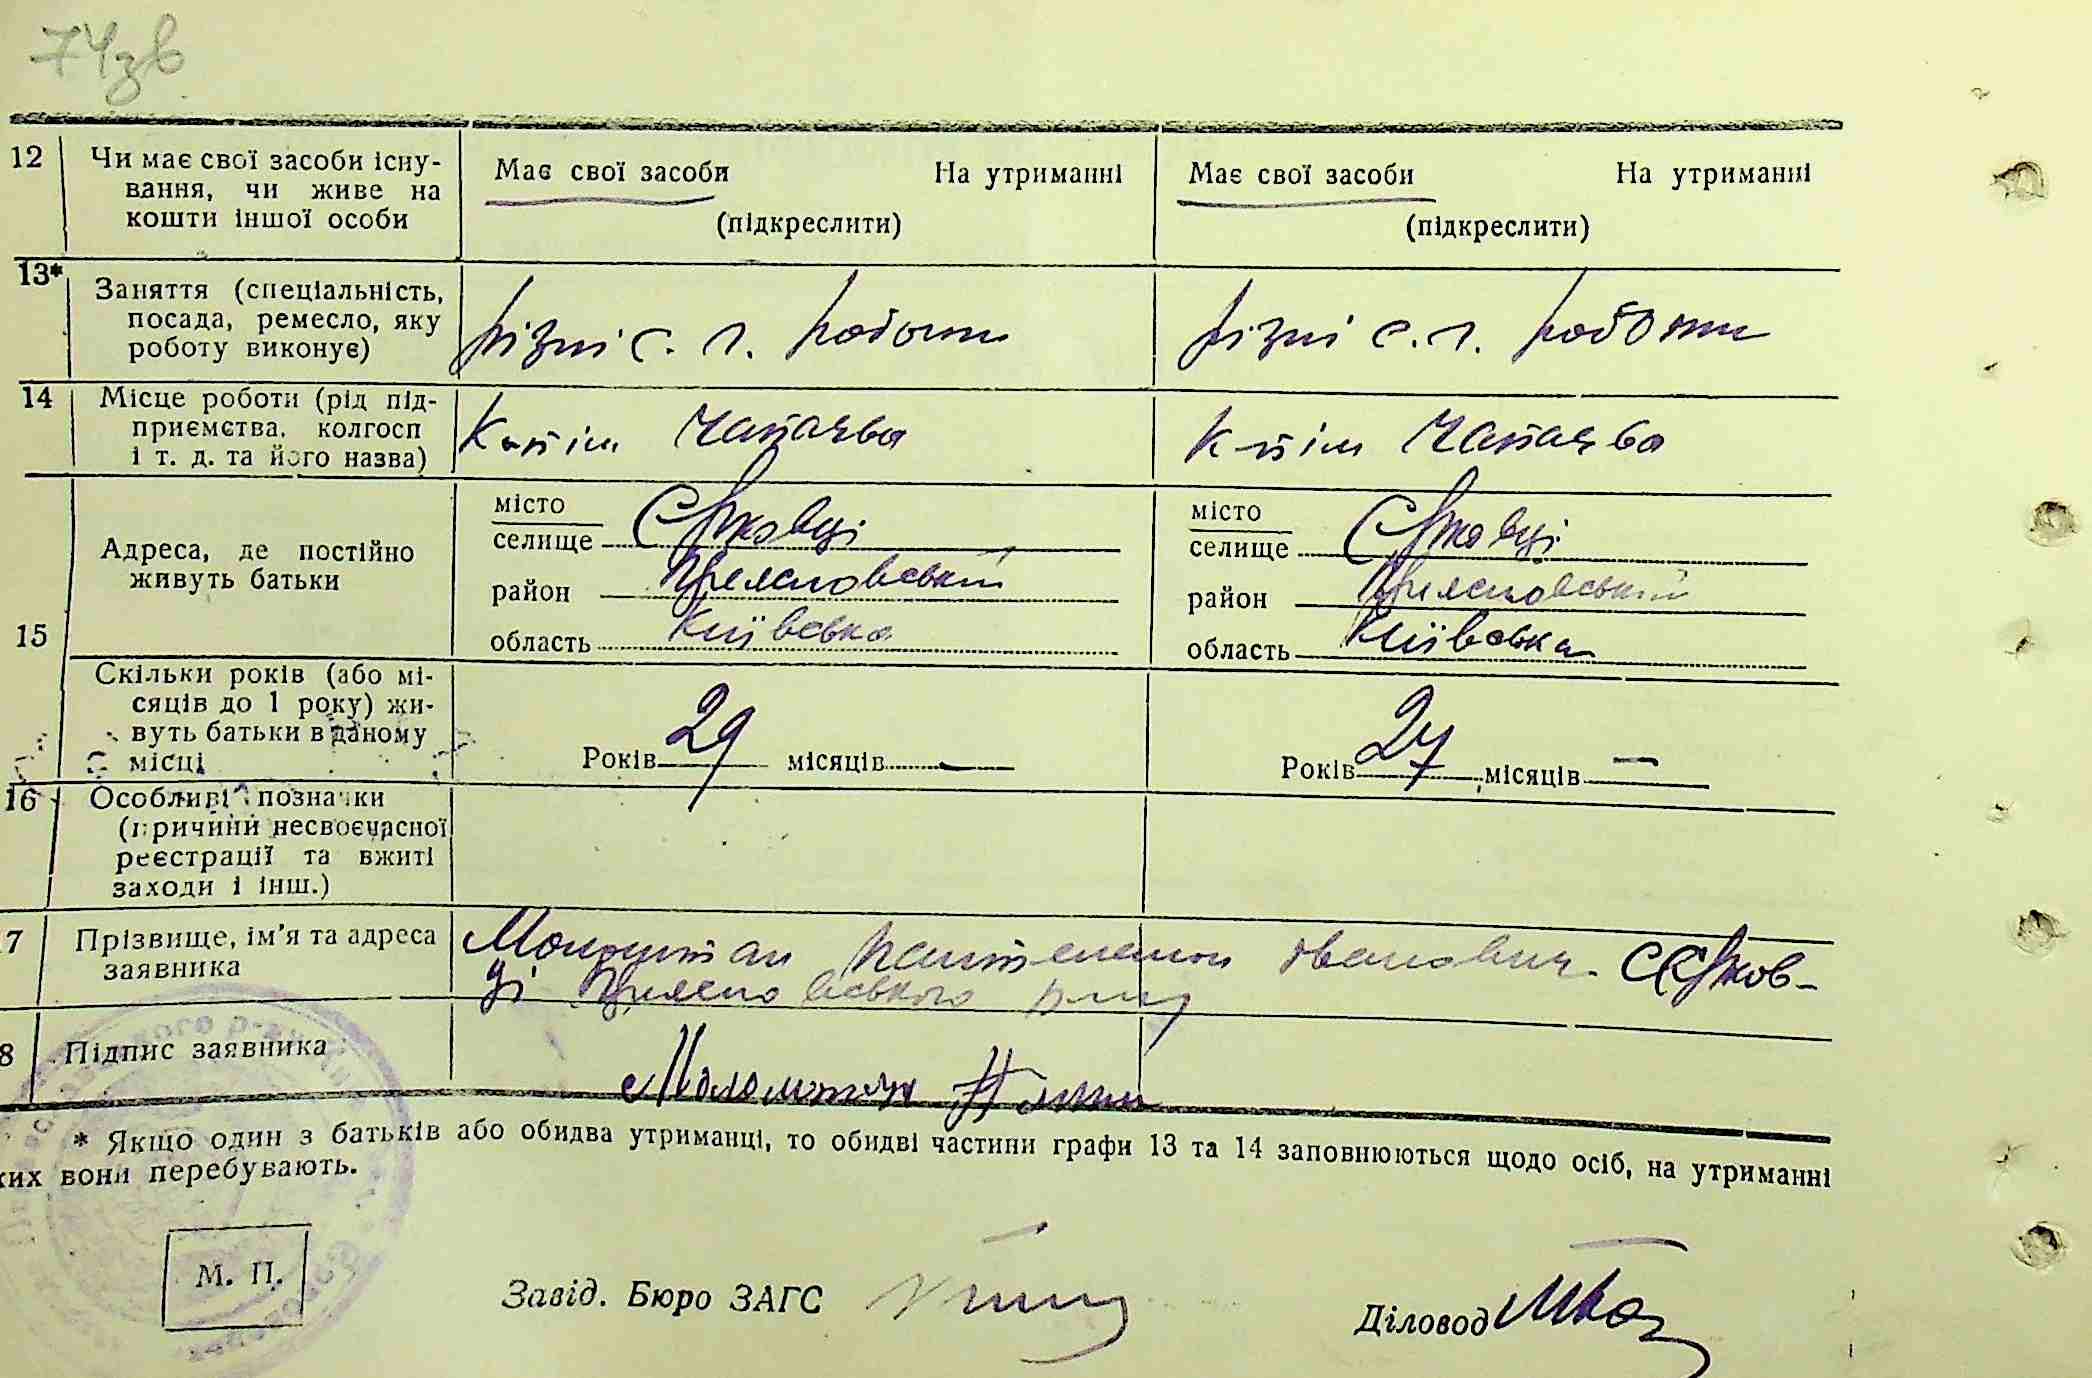 74зв
12 Чи має свої засоби існу-
вання, чи живе на
кошти іншої особи
Має свої засоби На утриманні
(підкреслити)
Має свої засоби На утриманні
(підкреслити)
13* Заняття (спеціальність,
посада, ремесло, яку
роботу виконує)
різні с. г. роботи
різні с. г. роботи
14 Місце роботи (рід під-
приємства, колгосп
і т. д. та його назва)
Чапаєва
Чапаєва
15 Адреса, де постійно
живуть батьки
місто
селище Єрковці
район
область Київська
місто
селище Єрковці
район
область Київська
Скільки років (або мі-
сяців до 1 року) жи-
вуть батьки в даному
місці
Років 29 місяців —
Років 27 місяців —
16 Особливі позначки
(причини несвоєчасної
реєстрації та вжиті
заходи і інш.)
17 Прізвище, ім'я та адреса
заявника
Пантелемон Іванович
8 Підпис заявника
* Якщо один з батьків або обидва утриманці, то обидві частини графи 13 та 14 заповнюються щодо осіб, на утриманні
ких вони перебувають.
М. П.
Завід. Бюро ЗАГС
Діловод